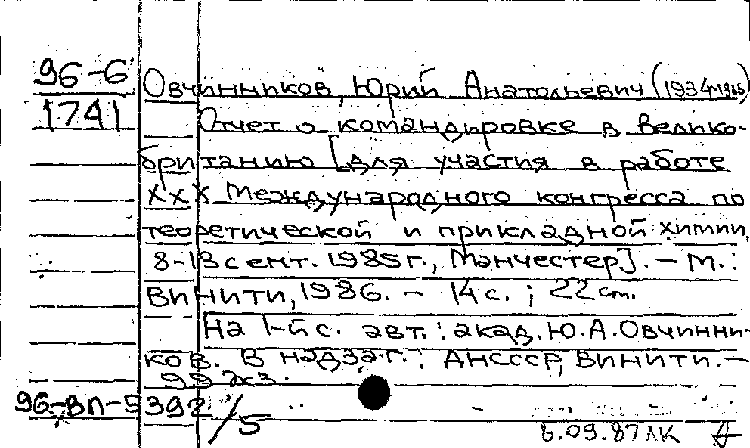 96-6
1741
Овчинников, Юрий Анатольевич (1934-
Отчет о командировке в Велико-
британию [для участия в работе
XXX Международного конгресса по
теоретической и прикладной химии,
8-13 сент. 1985г., Манчестер]. - М.:
ВИНИТИ, 1986. - 14 с. ; 22 см.
На 1-й с. авт.: акад. Ю.А. Овчинни-
ков. В надзаг.: АН СССР, ВИНИТИ. -
экз.
96-ВП-5392/5
6.09.87 ЛК